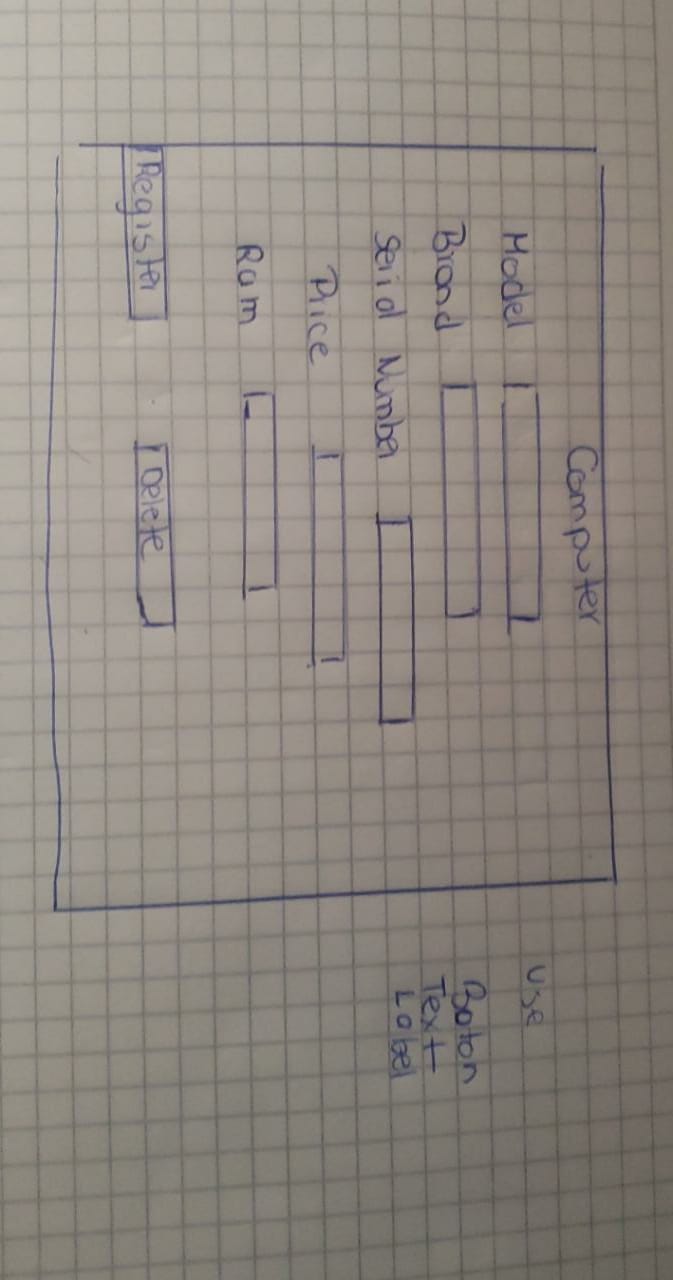 Computer
Model
Brand
Serial Number
Price
Ram
Register Delete
Use
Boton
Text
Label